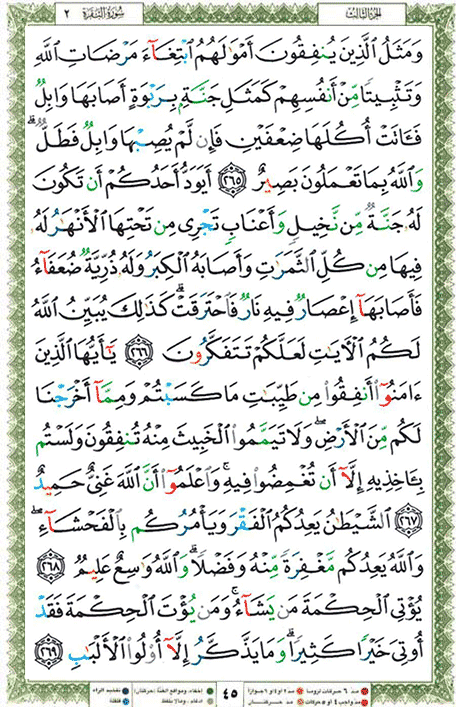 الجزء الثالث سورة البقرة ٢
وَمَثَلُ الَّذِينَ يُنفِقُونَ أَمْوَٰلَهُمُ ابْتِغَآءَ مَرْضَاتِ اللَّهِ
وَتَثْبِيتًا مِّنْ أَنفُسِهِمْ كَمَثَلِ جَنَّةٍۭ بِرَبْوَةٍ أَصَابَهَا وَابِلٌ
فَـَٔاتَتْ أُكُلَهَا ضِعْفَيْنِ فَإِن لَّمْ يُصِبْهَا وَابِلٌ فَطَلٌّ ۗ
وَاللَّهُ بِمَا تَعْمَلُونَ بَصِيرٌ ٢٦٥ أَيَوَدُّ أَحَدُكُمْ أَن تَكُونَ
لَهُۥ جَنَّةٌ مِّن نَّخِيلٍ وَأَعْنَابٍ تَجْرِى مِن تَحْتِهَا الْأَنْهَٰرُ لَهُۥ
فِيهَا مِن كُلِّ الثَّمَرَٰتِ وَأَصَابَهُ الْكِبَرُ وَلَهُۥ ذُرِّيَّةٌ ضُعَفَآءُ
فَأَصَابَهَآ إِعْصَارٌ فِيهِ نَارٌ فَاحْتَرَقَتْ ۗ كَذَٰلِكَ يُبَيِّنُ اللَّهُ
لَكُمُ الْـَٔايَٰتِ لَعَلَّكُمْ تَتَفَكَّرُونَ ٢٦٦ يَٰٓأَيُّهَا الَّذِينَ
ءَامَنُوٓا أَنفِقُوا مِن طَيِّبَٰتِ مَا كَسَبْتُمْ وَمِمَّآ أَخْرَجْنَا
لَكُم مِّنَ الْأَرْضِ ۖ وَلَا تَيَمَّمُوا الْخَبِيثَ مِنْهُ تُنفِقُونَ وَلَسْتُم
بِـَٔاخِذِيهِ إِلَّآ أَن تُغْمِضُوا فِيهِ ۚ وَاعْلَمُوٓا أَنَّ اللَّهَ غَنِىٌّ حَمِيدٌ
٢٦٧ الشَّيْطَٰنُ يَعِدُكُمُ الْفَقْرَ وَيَأْمُرُكُم بِالْفَحْشَآءِ ۖ
وَاللَّهُ يَعِدُكُم مَّغْفِرَةً مِّنْهُ وَفَضْلًا ۗ وَاللَّهُ وَٰسِعٌ عَلِيمٌ ٢٦٨
يُؤْتِى الْحِكْمَةَ مَن يَشَآءُ ۚ وَمَن يُؤْتَ الْحِكْمَةَ فَقَدْ
أُوتِىَ خَيْرًا كَثِيرًا ۗ وَمَا يَذَّكَّرُ إِلَّآ أُولُوا الْأَلْبَٰبِ ٢٦٩
٤٥